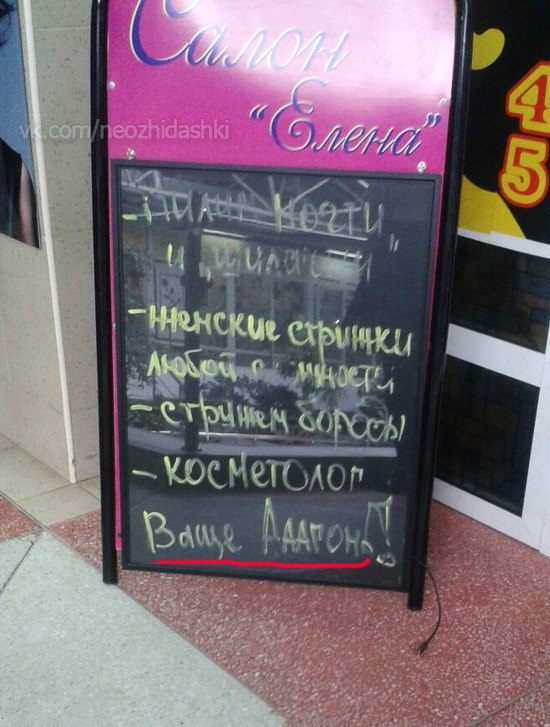 Салон
"Елена"
vk.com/neozhidashki
- Пилим ногти
и
- женские стрижки
любой
- стрижем бороды
- косметолог
Ваще Ааагонь!
4
5